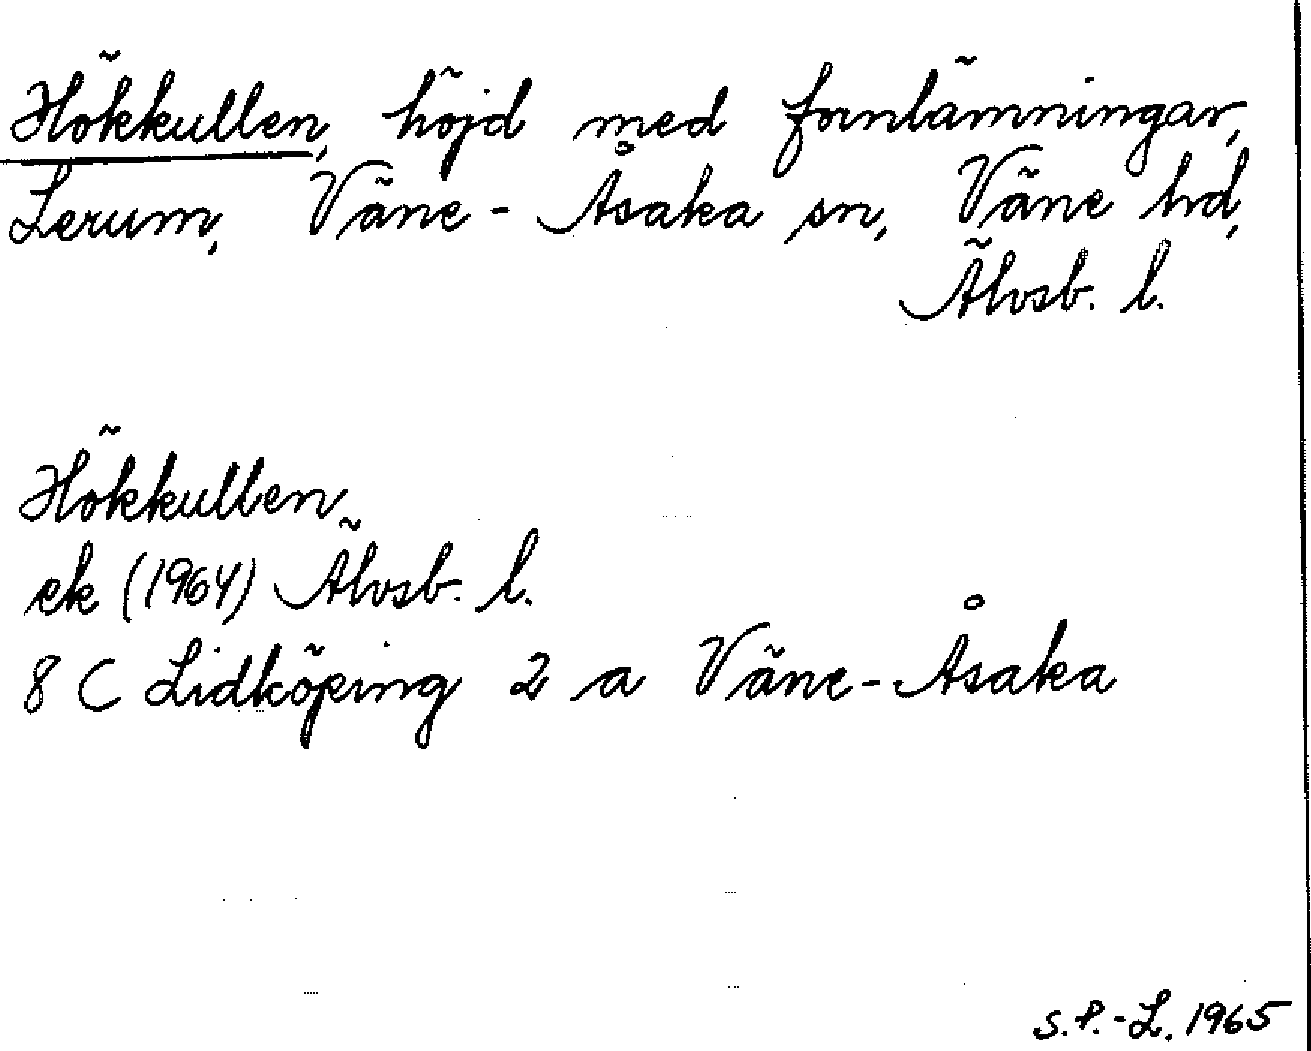 Hökkullen, höjd med fornlämningar,
Lerum, Väne-Åsaka sn, Väne hd,
Älvsb. l.
Hökkullen
ek (1964) Älvsb. l.
8 C Lidköping 2 a Väne-Åsaka
S.P.-L. 1965